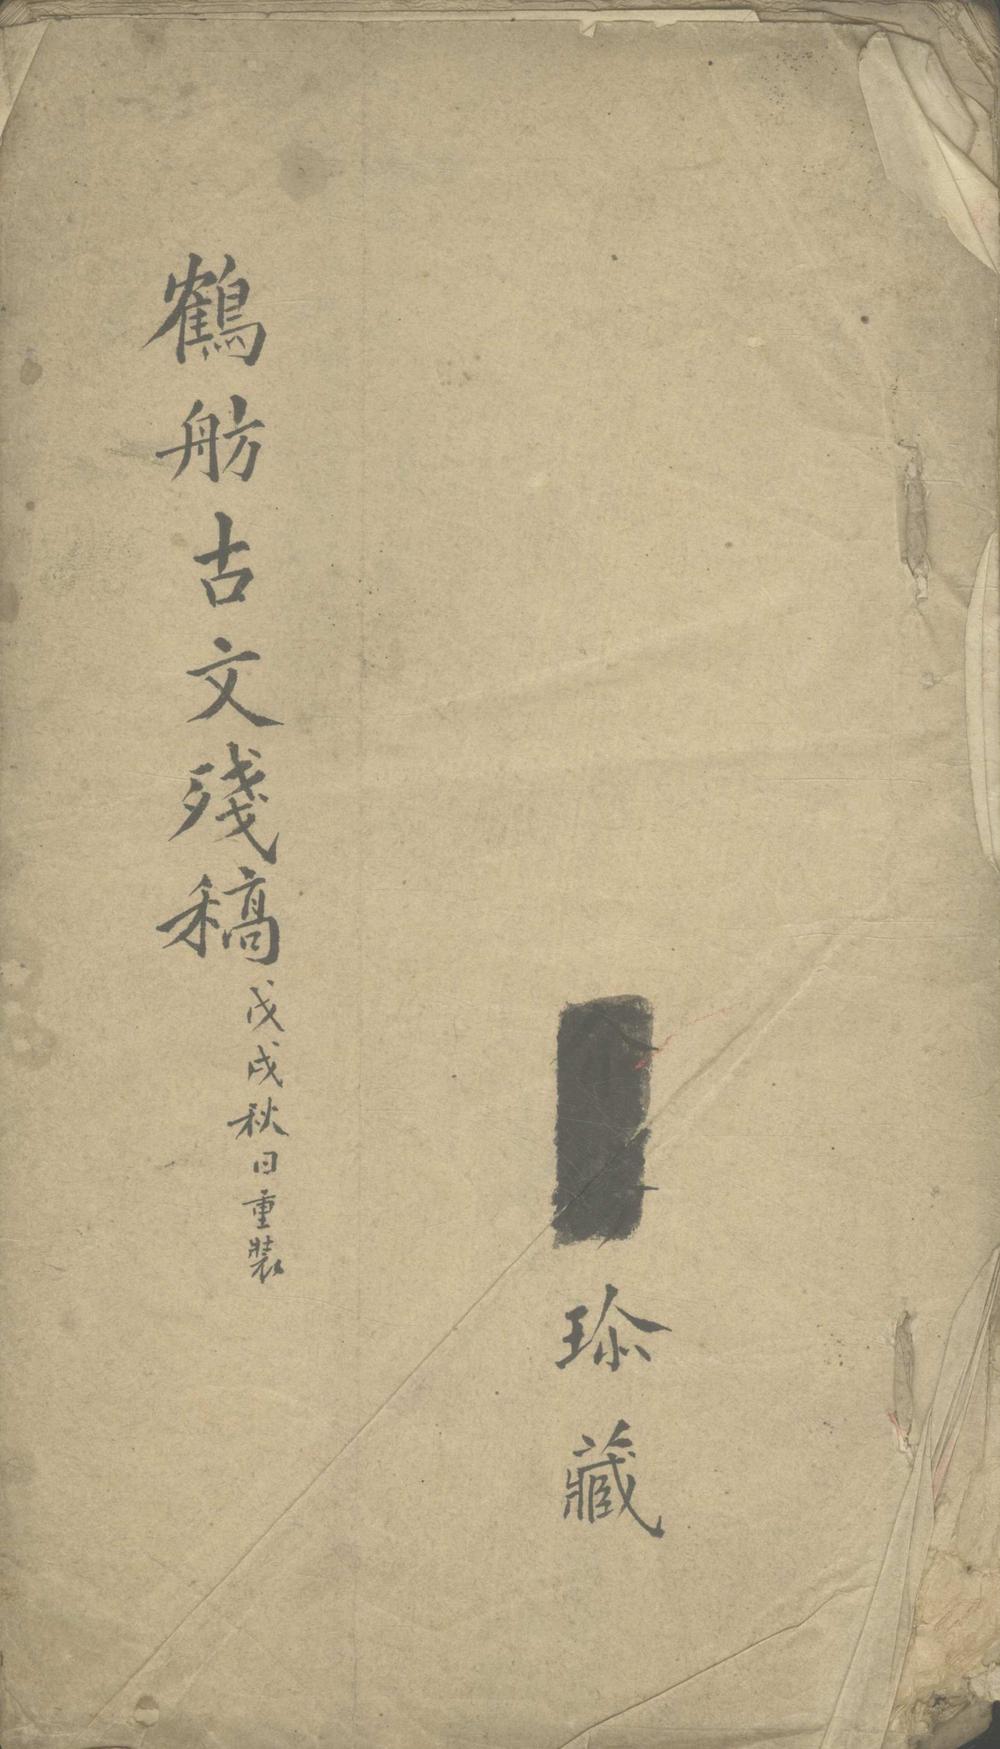 珎藏
鶴舫古文殘稿
戊戌秋日重裝